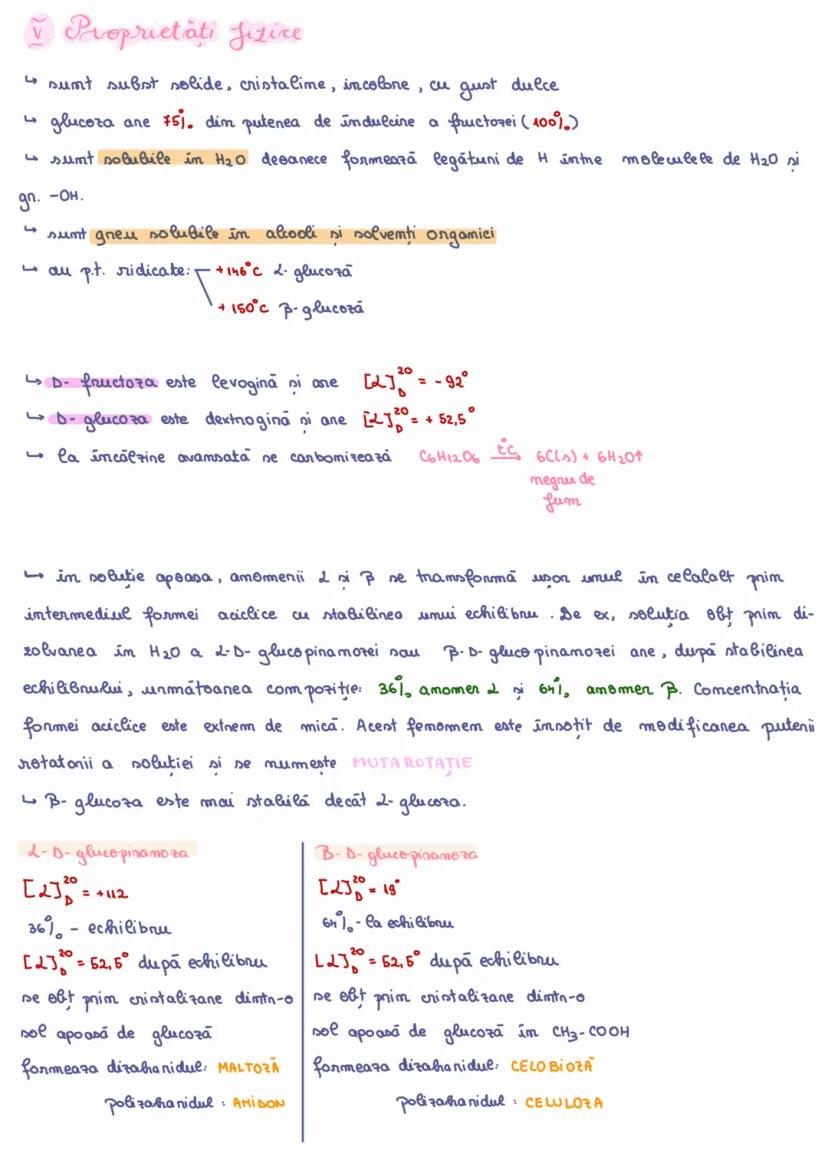 V Proprietăți fizice
↳ sunt subst solide, cristaline, incolore, cu gust dulce
↳ glucoza are 75% din puterea de îndulcire a fructozei (100%)
↳ sunt solubile în H2O deoarece formează legături de H între moleculele de H2O și
gr. -OH.
↳ sunt greu solubile în alcooli și solvenți organici
↳ au p.t. ridicate: +146°C α-glucoză
+150°C β-glucoză
↳ D-fructoza este levogiră și are [α]D20 = -92°
↳ D-glucoza este dextrogiră și are [α]D20 = +52,5°
↳ la încălzire avansată se carbonizează C6H12O6 →t°C 6C(s) + 6H2O↑
negru de
fum
↳ în soluție apoasa, anomerii α și β se transformă ușor unul în celalalt prin
intermediul formei aciclice cu stabilirea unui echilibru. De ex, soluția obț prin di-
zolvarea în H2O a α-D-glucopiranozei sau β-D-glucopiranozei are, după stabilirea
echilibrului, următoarea compoziție: 36% anomer α și 64% anomer β. Concentrația
formei aciclice este extrem de mică. Acest fenomem este însoțit de modificarea puterii
rotatorii a soluției și se numește MUTAROTAȚIE
↳ β-glucoza este mai stabilă decât α-glucoza.
α-D-glucopiranoza
[α]D20 = +112
36% - echilibru
[α]D20 = 52,5° după echilibru
se obț prin cristalizare dintr-o
sol apoasă de glucoză
formeaza dizaharidul: MALTOZĂ
polizaharidul: AMIDON
B-D-glucopiranoza
[α]D20 = 19°
64% - la echilibru
[α]D20 = 52,5° după echilibru
se obț prin cristalizare dintr-o
sol apoasă de glucoză în CH3-COOH
formeaza dizaharidul: CELOBIOZĂ
polizaharidul: CELULOZA